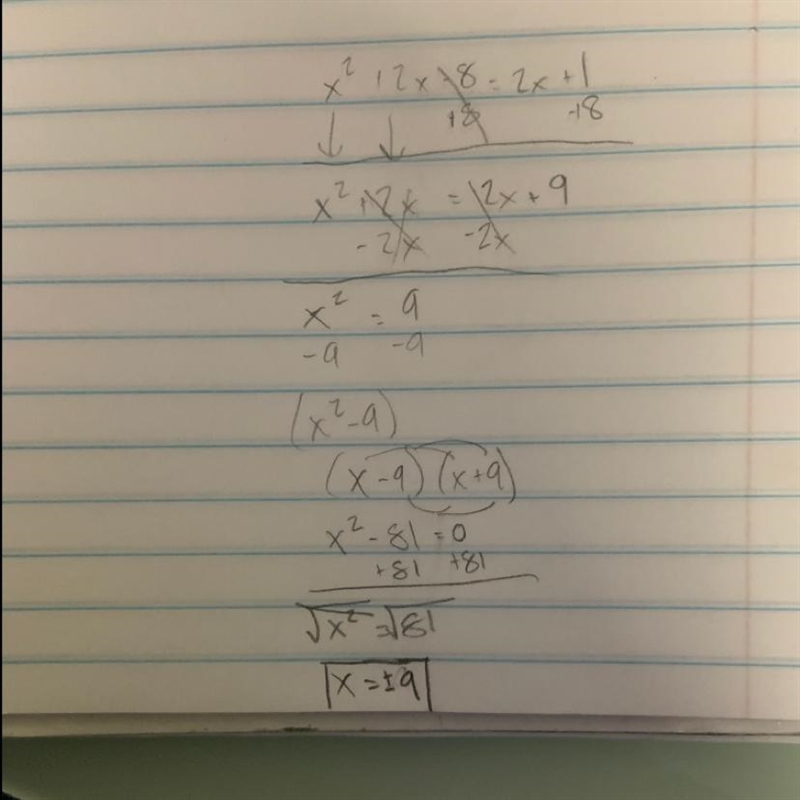 x² + 2x - 8 = 2x + 1
+8 +8
x² + 2x = 2x + 9
- 2x - 2x
x² = 9
-9 -9
(x² - 9)
(x - 9)(x + 9)
x² - 81 = 0
+81 +81
√x² = √81
x = ±9